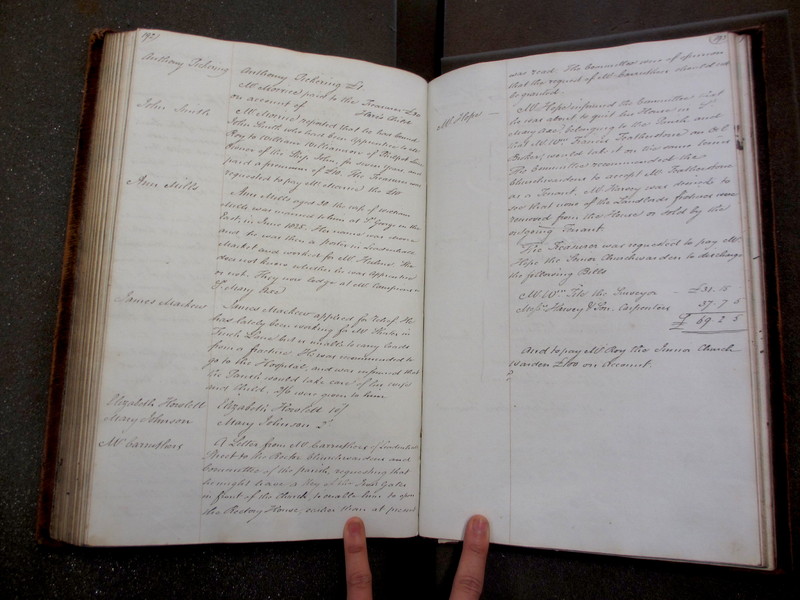 192
Anthony Pickering
Anthony Pickering £1
Mr Morrice paid to the Treasurer
on account of
John Smith
Mr Morrice reported that he had bound
John Smith who had been apprentice to
Roy to William Williamson of
Owner of the Ship John, for seven years, and
paid a premium of £10. The Treasurer was
requested to pay Mr Morrice the £10
Ann Mills
Ann Mills aged 21 the wife of William
Mills was married to him at St Georges in the
East, in June 1825. Her name was
and he was then a porter in Leadenhall
Market and worked for Mr She
does not know whether he was apprentice
or not. They now lodge at Mr
St Mary Axe
James Machew
James Machew applied for relief. He
has lately been working for Mr in
Lane but is unable to carry loads
from a fracture. He was recommended to
go to the Hospital, and was informed that
the Parish would take care of his wife
and Child. 2/6 were given to him
Elizabeth Howlett
Elizabeth Howlett 10/
Mary Johnson
Mary Johnson
Mr Carruthers
A Letter from Mr Carruthers of Leadenhall
Street to the Rector Churchwardens and
Committee of the parish, requesting that
he might have a Key of the Iron Gates
in front of the Church, to enable him to
the Rectory House, than at present
193
was read. The Committee were of opinion
that the request of Mr Carruthers should not
be granted.
Mr Hope
Mr Hope informed the Committee that
he was about to quit his House in St
Mary Axe, belonging to the Church, and
that Mr Wm Francis Featherstone an Oil
would take it on the same terms
The Committee recommended the
Churchwardens to accept Mr Featherstone
as a Tenant. Mr Harvey was desired to
see that none of the Landlords fixtures were
removed from the House or sold by the
outgoing Tenant.
The Treasurer was requested to pay Mr
Hope the Senior Churchwarden to discharge
the following Bills
Mr Wm Tite the Surveyor - £31. 15
Messrs Harvey & Son Carpenters 37. 7. 5
£ 69. 2. 5
And to pay Mr Roy the Junior Church
Warden £100 on Account.